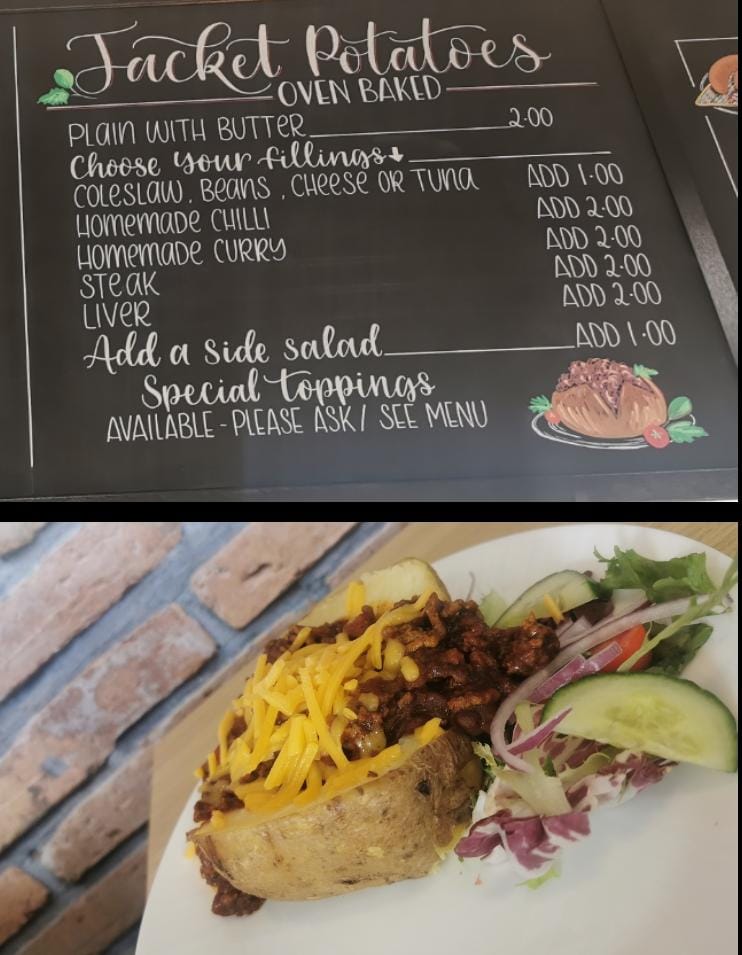 Jacket Potatoes
OVEN BAKED
PLAIN WITH BUTTER 2.00
Choose your fillings↓
COLESLAW, BEANS, CHEESE OR TUNA ADD 1.00
HOMEMADE CHILLI ADD 2.00
HOMEMADE CURRY ADD 2.00
STEAK ADD 2.00
LIVER ADD 2.00
Add a side salad ADD 1.00
Special toppings
AVAILABLE - PLEASE ASK / SEE MENU